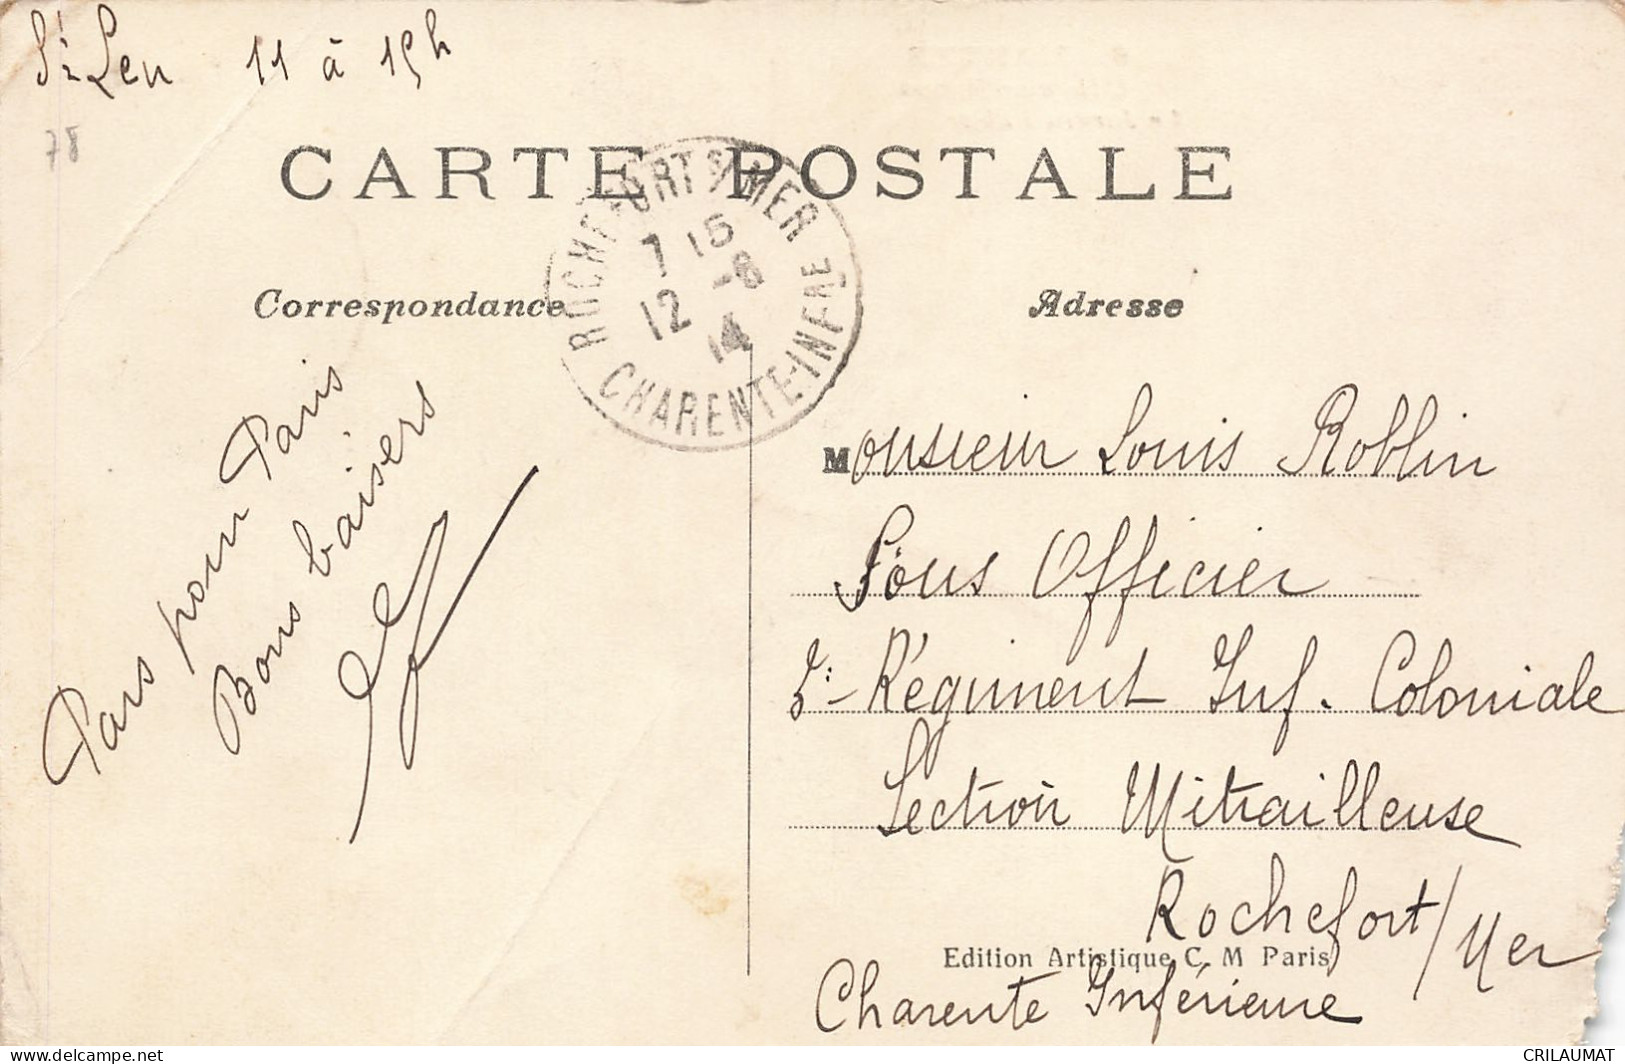 St Leu 11 à 15h
78
CARTE POSTALE
ROCHEFORT S/ MER
7 15
12 -8
14
CHARENTE-INFRE
Correspondance
Adresse
Pars pour Paris
Bons baisers
Monsieur Louis Roblin
Sous Officier
3e Régiment Inf. Coloniale
Section Mitrailleuse
Rochefort/Mer
Edition Artistique C. M Paris
Charente Inférieure
CRILAUMAT
delcampe.net